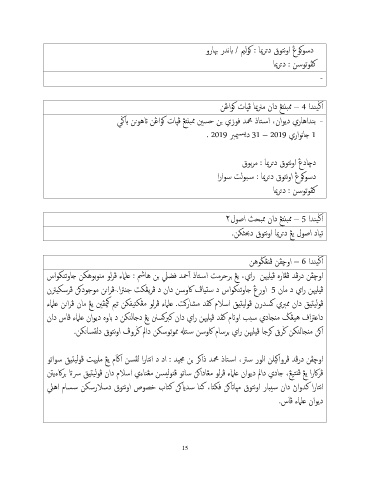 دسوکوڠ اونتوق دتريما : کوليم / باندر بهارو
کڤوتوسن : دتريما
-
اݢيندا 4 – ممبنتڠ دان منريما ڤيات کواڠن
- بنداهاري ديوان، استاذ محمد فوزي بن حسين ممبنتڠ ڤيات کواڠن تاهونن باݢي
1 جانواري 2019 – 31 ديسيمبر 2019 .
دچادڠ اونتوق دتريما : مربوق
دسوکوڠ اونتوق دتريما : سبولت سوارا
کڤوتوسن : دتريما
اݢيندا 5 – ممبنتڠ دان ممبحث اصول٢
تياد اصول يڠ دتريما اونتوق دبحثکن.
اݢيندا 6 – اوچڤن ڤڠݢولوڠن
اوچڤن درڤد ڤڠاره ڤيليهن راي، يڠ برحرمت استاذ احمد فضلي بن هاشم : علماء ڤرلو منوبوهکن جاوتنکواس
ڤيليهن راي د مان 5 اورڠ جاوتنکواس د ستياڤ کاوسن دان د ڤريڠکت جنترا. ڤرانن موجودکن ڤرسکيترن
ڤوليتيق دان ممبري کسدرن ڤوليتيق اسلام کڤد مشارکت. علماء ڤرلو مڠکتيفکن تيم کمڤين يڠ مان ڤرانن علماء
داعتراف هيڠݢ منجادي سبب اوتام کڤد ڤيليهن راي دان کبرکسنن يڠ دجالنکن د باوه ديوان علماء ڤاس دان
اکن منجالنکن کرڤ کرجا ڤيليهن راي برسام کاوسن ستله ممبوتوسکن دالم کروڤ اونتوق دلقساناکن.
اوچڤن درڤد ڤرواکيلن الور ستر، استاذ محمد ذاکر بن مجيد : اد د انتارا ڤلمسن اݢام يڠ مليهت ڤوليتيق سواتو
ڤرکارا يڠ ڤنتيڠ. جادي دالم ديوان علماء ڤرلو مڠاداکن ساتو ڤنوليسن مڠناءي اسلام دان ڤوليتيق سرتا برکاءيتن
انتارا کدواڽ دان سيبار اونتوق مهاتيکن فکتا، کنا سدياکن کتاب خصوص اونتوق دسلارسکن سسام اهلي
ديوان علماء ڤاس.
15